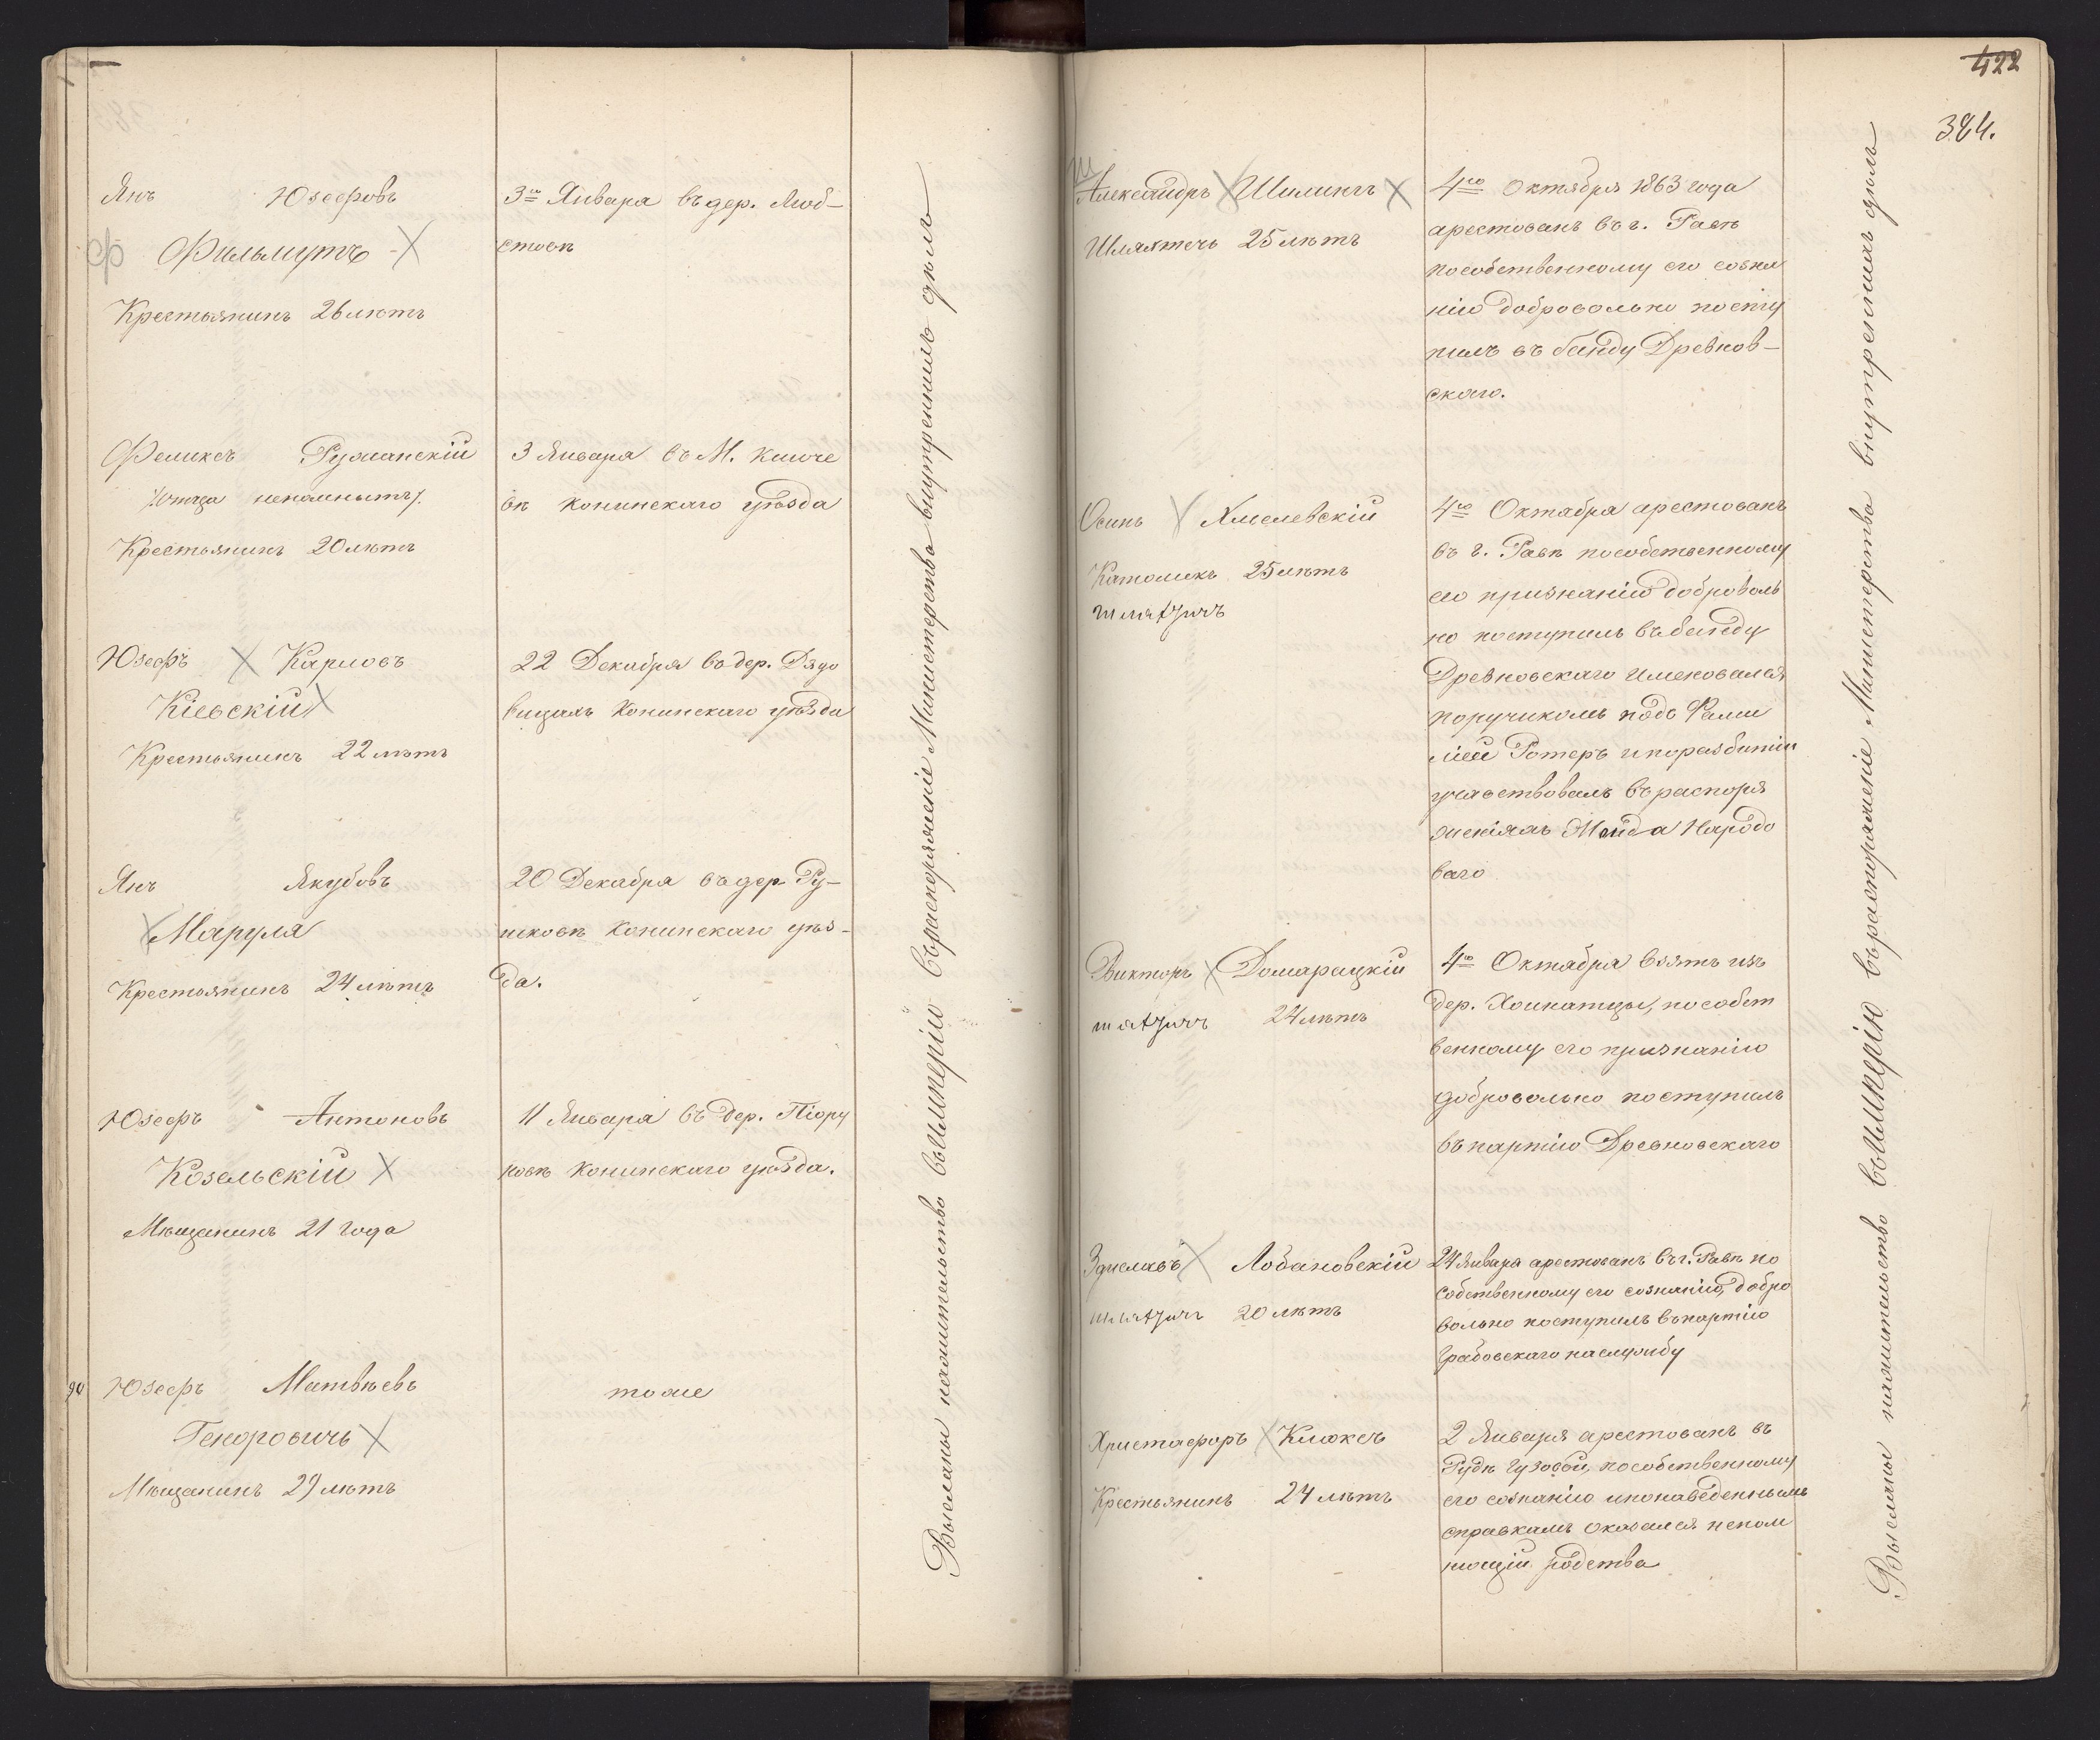 Янъ Юзефовъ
Ф Фильмутъ
Крестьянинъ 26 лѣтъ
3го Января въ дер. Люб-
стовѣ
Феликсъ Румянскій
/:отца непомнитъ:/
Крестьянинъ 20 лѣтъ
3 Января въ М. Кличе
вѣ Конинскаго уѣзда
Юзефъ Карловъ
Кіевскій
Крестьянинъ 22 лѣтъ
22 Декабря въ дер. Дядо
вицахъ Конинскаго уѣзда
Янъ Якубовъ
Маруля
Крестьянинъ 24 лѣтъ
20 Декабря въ дер. Ру-
шковѣ Конинскаго уѣз-
да.
Юзефъ Антоновъ
Козельскій
Мѣщанинъ 21 года
11 Января въ дер. Піору
новѣ Конинскаго уѣзда.
Юзефъ Матвѣевъ
Мѣщанинъ 29 лѣтъ
тоже
Высланы на жительство въ Имперію въ распоряженіе Министерства внутреннихъ дѣлъ
422
384.
Александръ Шилингъ
Шляхтичь 25 лѣтъ
4го Октября 1863 года
арестованъ въ г. Равѣ
по собственному его созна
нію добровольно посту
пилъ въ банду Древнов-
скаго.
Осипъ Хмелевскій
Католикъ 25 лѣтъ
шляхтичъ
4го Октября арестованъ
въ г. Равѣ по собственному
его признанію доброволь
но поступилъ въ банду
Древновскаго именовался
поручикомъ подъ Фами
ліей Ротеръ и по разбитіи
участвовалъ въ распоря
женіяхъ Жонда Народо
ваго
Викторъ Домарацкій
шляхтичъ 24 лѣтъ
4го Октября взятъ изъ
дер. Хойнатцы, по собст
венному его признанію
добровольно поступилъ
въ партію Древновскаго
Здиславъ Лобановскій
шляхтичъ 20 лѣтъ
24 Января арестованъ въ г. Равѣ по
собственному его сознанію, добро
вольно поступилъ въ партію
Грабовскаго на службу
Христофоръ Клюксъ
Крестьянинъ 24 лѣтъ
2 Января арестованъ въ
Рудѣ Гузовой, по собственному
его сознанію и по наведеннымъ
справкамъ оказался непом
нющій родства
Высланы на жительство въ Имперію въ распоряженіе Министерства внутреннихъ дѣлъ